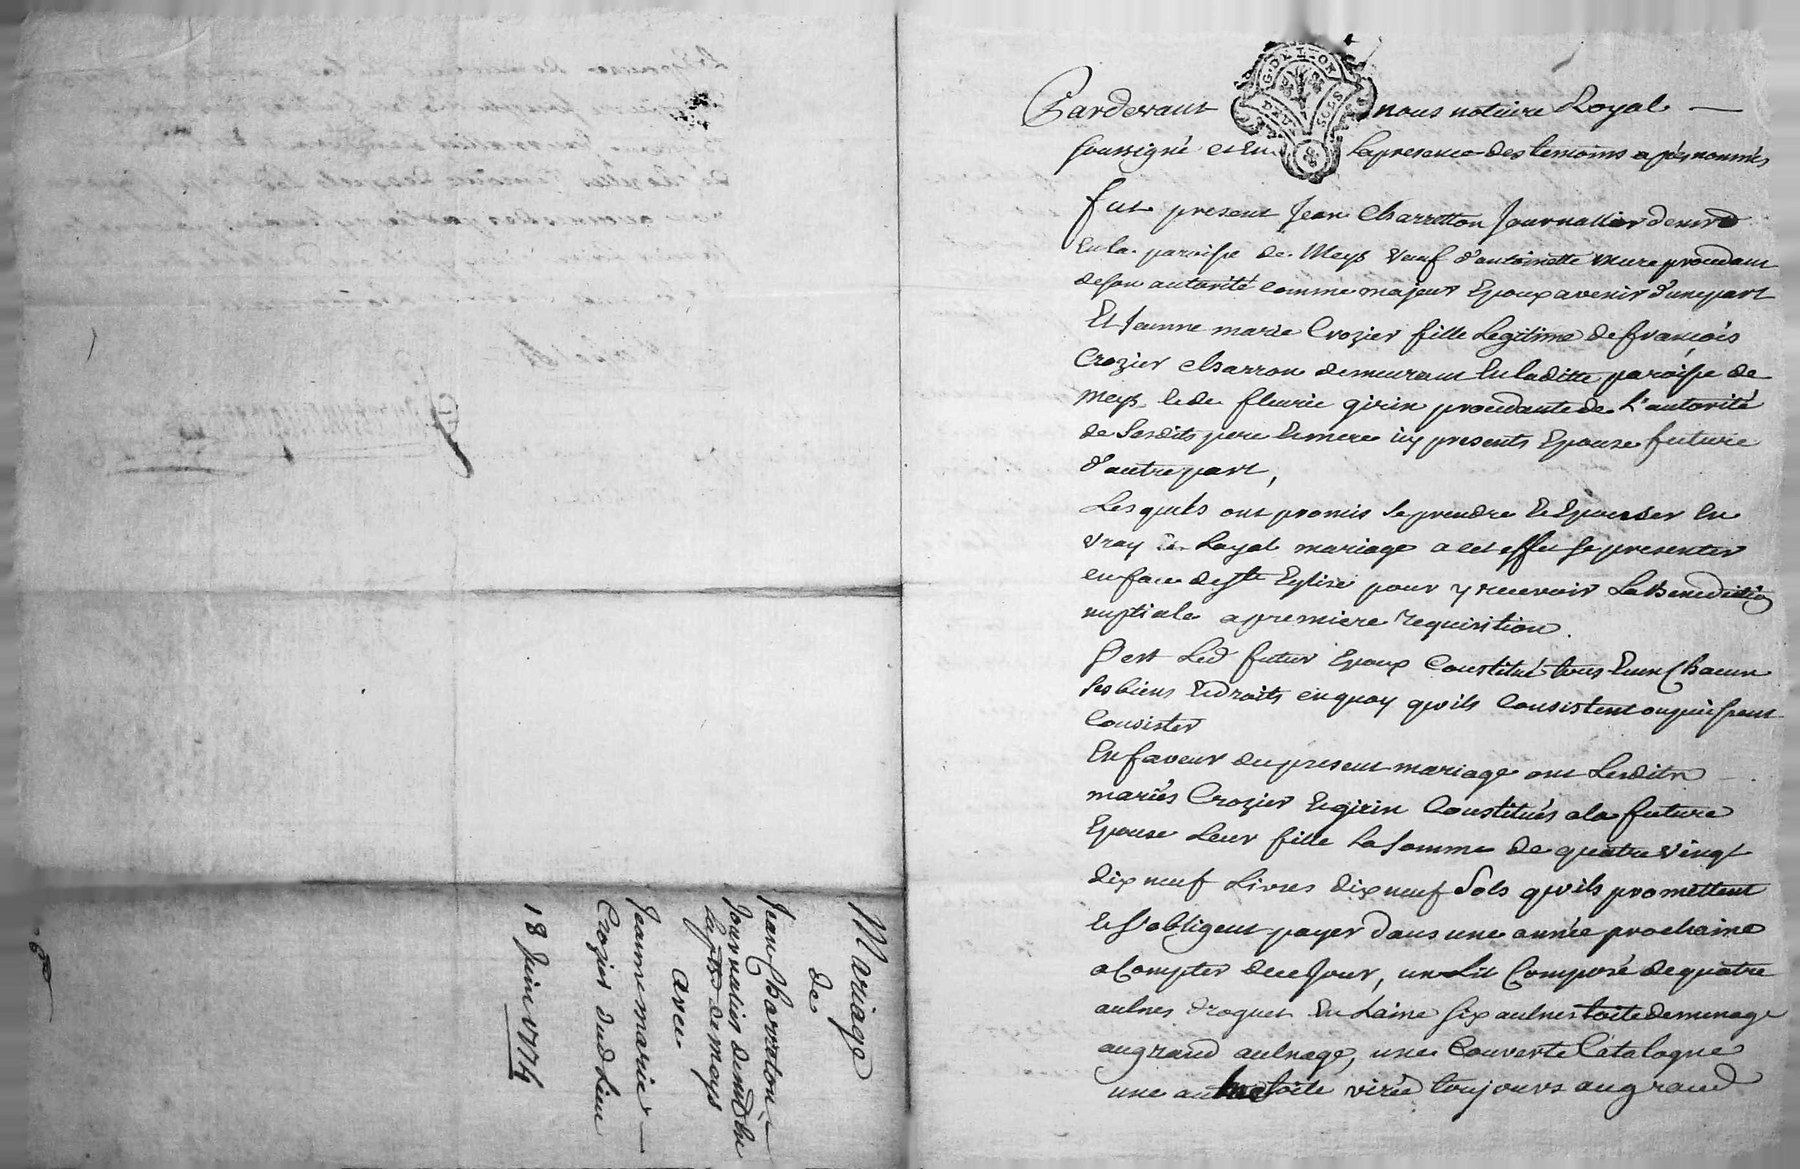 Mariage
de
Jean Charratton
Journalier demt en
la psse de Meys
avec
Jeanne marie
Crozier dud Lieu
18 Juin 1774
G. DE LYON
DEUX SOLS
Pardevant nous notaire Royal
soussigné et en la presence des temoins apres nommés
fut present Jean Charretton Journallier demt
En la paroisse de Meys veuf d'antoinette mure procedant
de son autorité comme majeur Epoux avenir d'une part
Et Jeanne marie Crozier fille Legitime de françois
Crozier charron demeurant En laditte paroisse de
Meys et de fleurie girin procedante de L'autorité
de Sesdits pere et mere icy presents Epouse future
d'autre part,
Lesquels ont promis se prendre et Epouser En
vray et Loyal mariage a cet effet se presenter
en face de ste Eglise pour y recevoir La Benediction
nuptiale a premiere requisition.
S'est Led futur Epoux Constitué tous Et un Chacun
ses biens et droits en quoy qu'ils Consistent ou puissent
Consister
En faveur du present mariage ont Lesdits
mariés Crozier et girin Constitués a la future
Epouse Leur fille La somme de quatre vingt
dix neuf Livres dix neuf Sols qu'ils promettent
et s'obligent payer dans une année prochaine
a Compter de ce Jour, un Lit Composé de quatre
aulnes droguet En Laine six aulnes toile de menage
au grand aulnage, une Couverte Catalogne
une autre toile virée toujours au grand